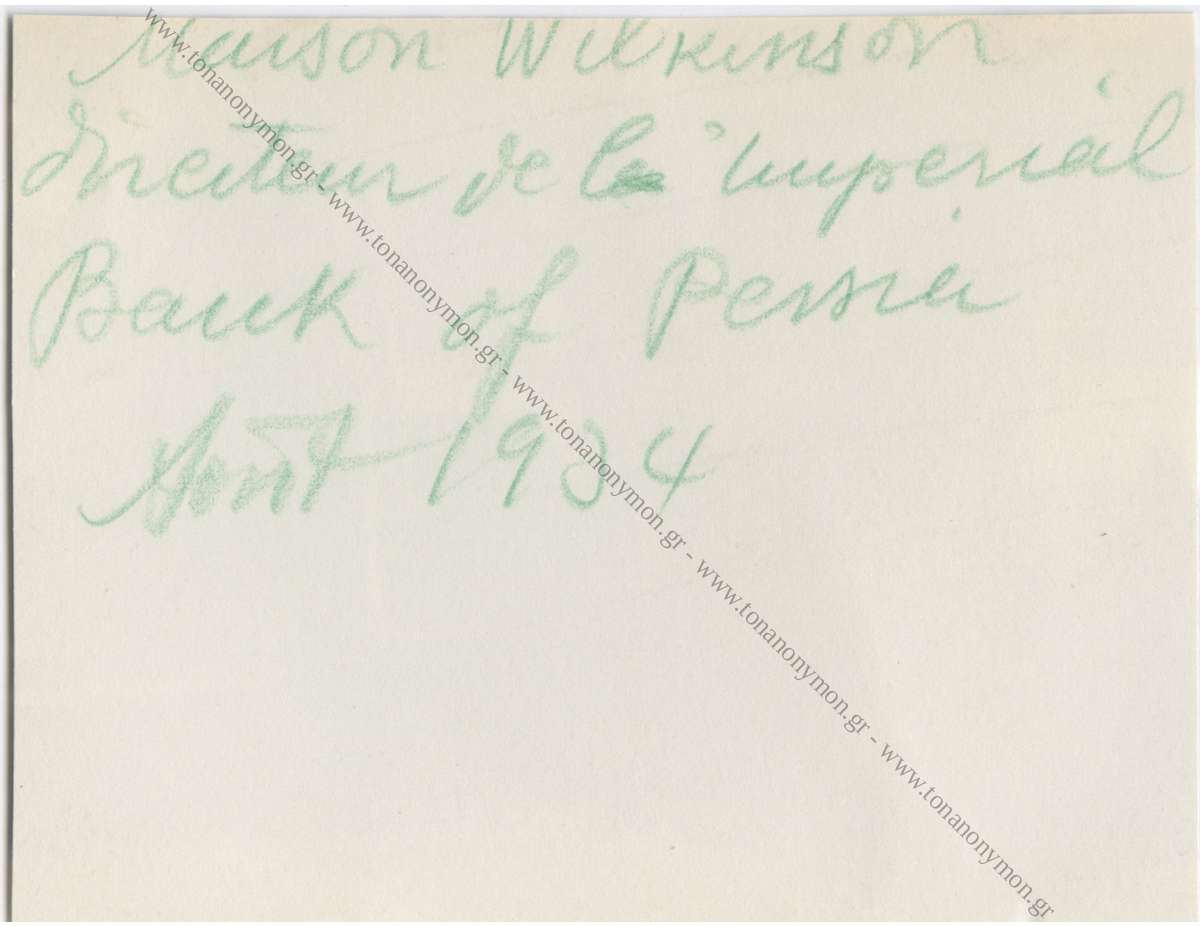 Maison Wilkinson
directeur de l' Imperial
Bank of Persia
Août 1934
www.tonanonymon.gr - www.tonanonymon.gr - www.tonanonymon.gr - www.tonanonymon.gr - www.tonanonymon.gr